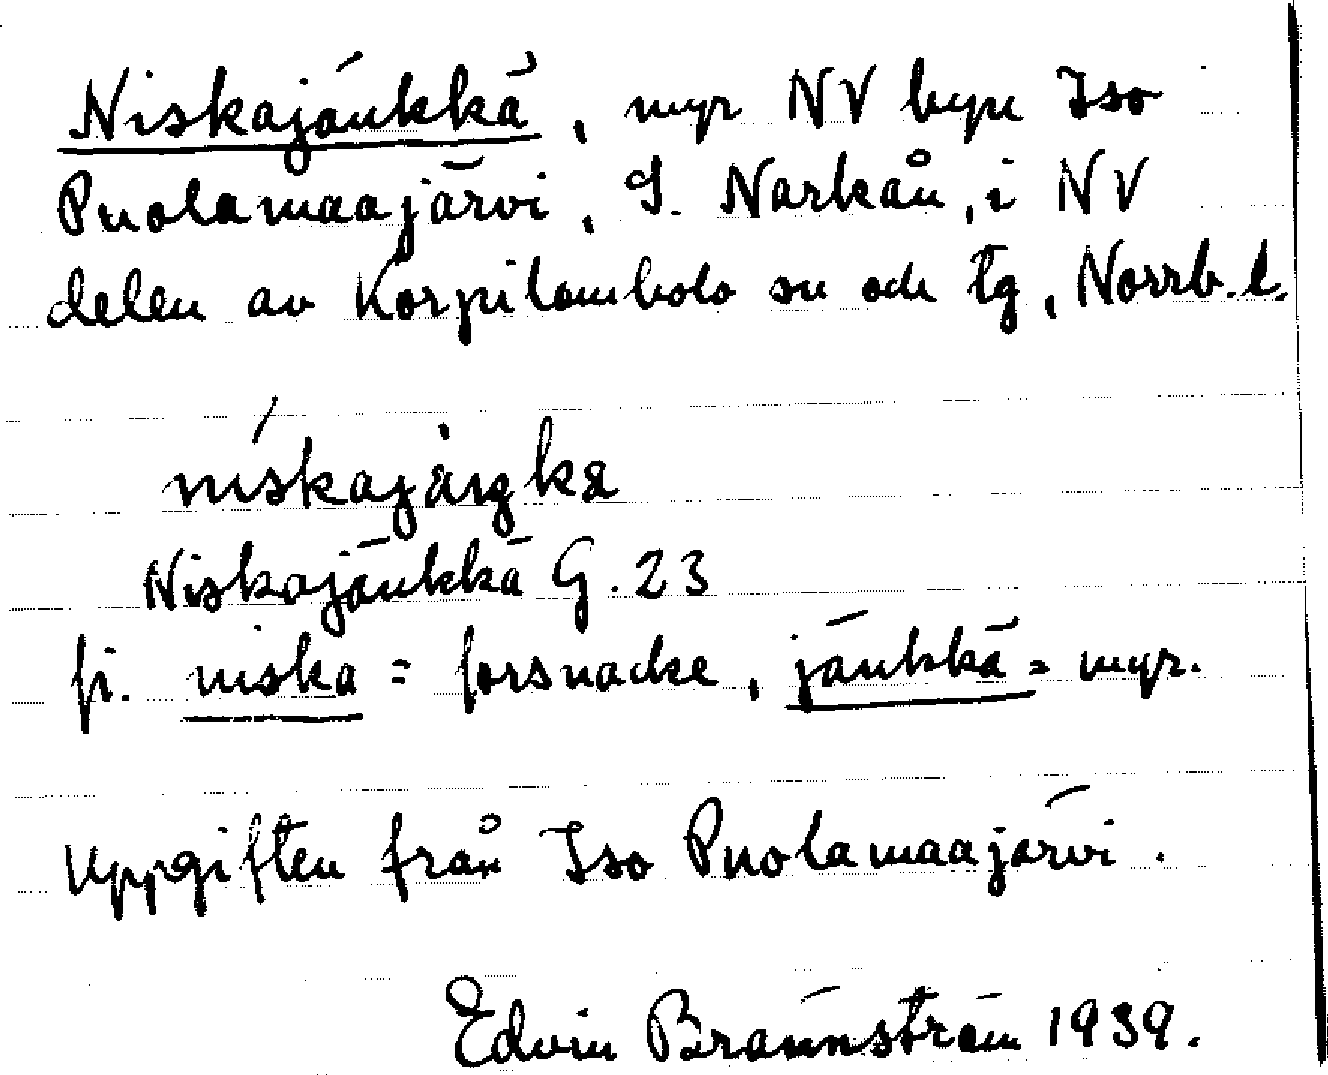 Niskajänkkä, myr NV byn Iso
Puolamaajärvi, S. Narkån, i NV
delen av Korpilombolo sn och tg, Norrb. l.
niskajäŋkä
Niskajänkkä G. 23
fi. niska = forsnacke, jänkkä = myr.
Uppgiften från Iso Puolamaajärvi.
Edvin Brännström 1939.